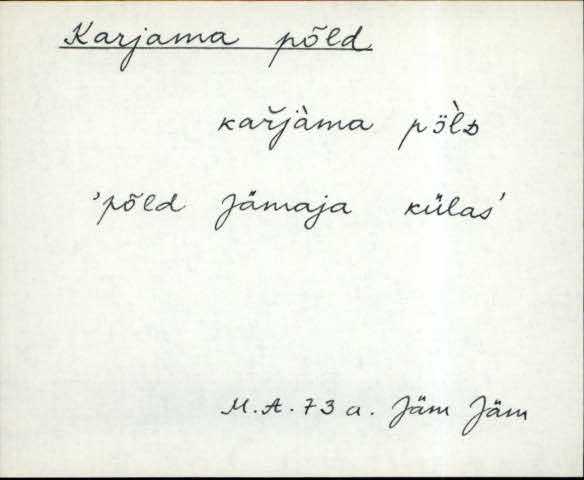 Karjama põld
kař̀jàma pö̀lᴅ
'põld Jämaja külas'
M. A. 73 a. Jäm Jäm